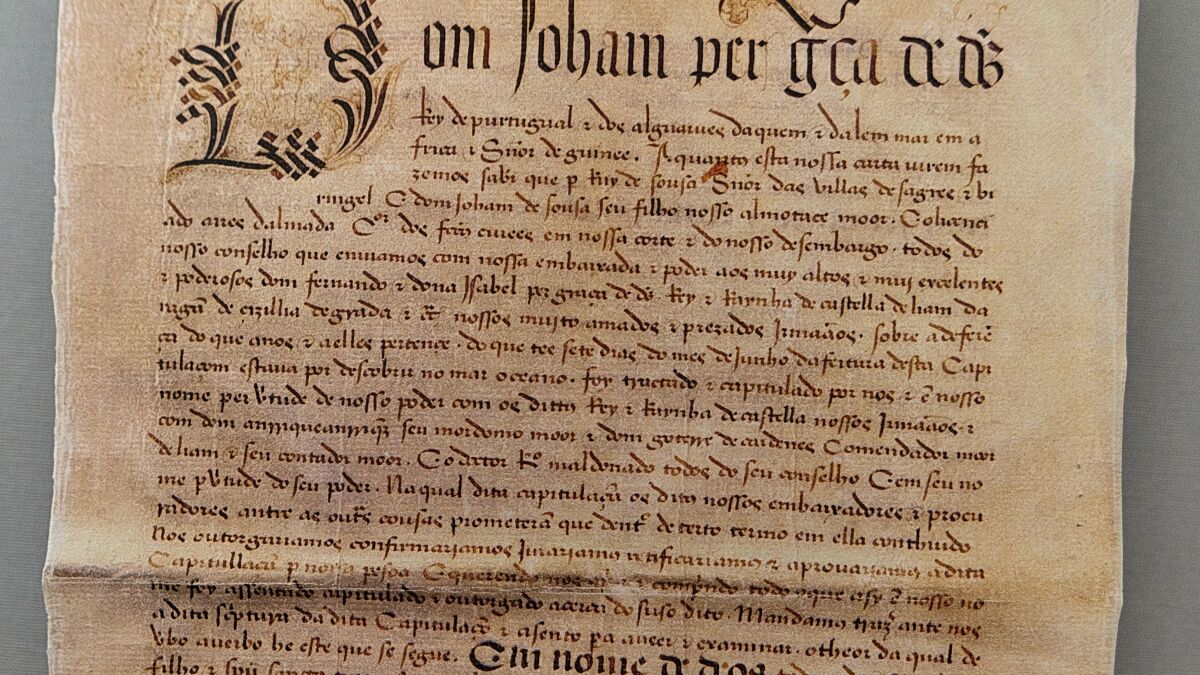 Dom Joham per gr̃ça de ds̃
Rey de purtugual & dos alguarues daquem & dalem mar em a
frica & Sñor de guinee. A quantos esta nossa carta virem fa
zemos saber que p Ruy de sousa Sñor das villas de sagres & bi
ringel E dom Joham de sousa seu filho nosso almotace moor. E o liçenci
ado aires dalmada Cor dos fectos ciuees em nossa corte & do nosso desembargo. todos do
nosso conselho que enuiamos com nossa embaixada & poder aos muy altos & muy excelentes
& poderosos dom fernando & dona Isabel per graça de ds̃. Rey & Raynha de castella de liam da
ragã de cizillia de grada & c̃ nossos muito amados & prezados Irmaãos. sobre a deferẽ
ça do que a nos & a elles pertençe. do que tee sete dias do mes de Junho da feitura desta Capi
tulaçom estaua por descobrir no mar oceano. foy tractado & capitulado por nos & ẽ nosso
nome per v̓tude de nosso poder com os dittos Rey & Raynha de castella nossos Irmaãos. &
com dom anrrique anrriqz̃ seu mordomo moor & dom goterre de cardenes Comendador moor
de liam & seu contador moor. E o doctor Ro maldonado todos do seu conselho E em seu no
me p v̓tude do seu poder. Na qual dita capitulaçã os ditos nossos embaixadores & procu
radores antre as outs̃ cousas prometerã que dentº de certo termo em ella conthiudo
Nos outorgariamos confirmariamos Jurariamos ratificariamos & aprouariamos a dita
Capitullaçã p nossa pesoa E querendo nos & comprindo todo o que asy ẽ nosso no
me foy assentado capitulado & outorgado açerca do suso dito. Mandamos traz̃ ante nos
a dita sc̃ptura da dita Capitulaçõ & asento pa a veer & examinar. o theor da qual de
v̓bo a verbo he este que se segue. Em nome de deos
filho & sp̃ũ sancto